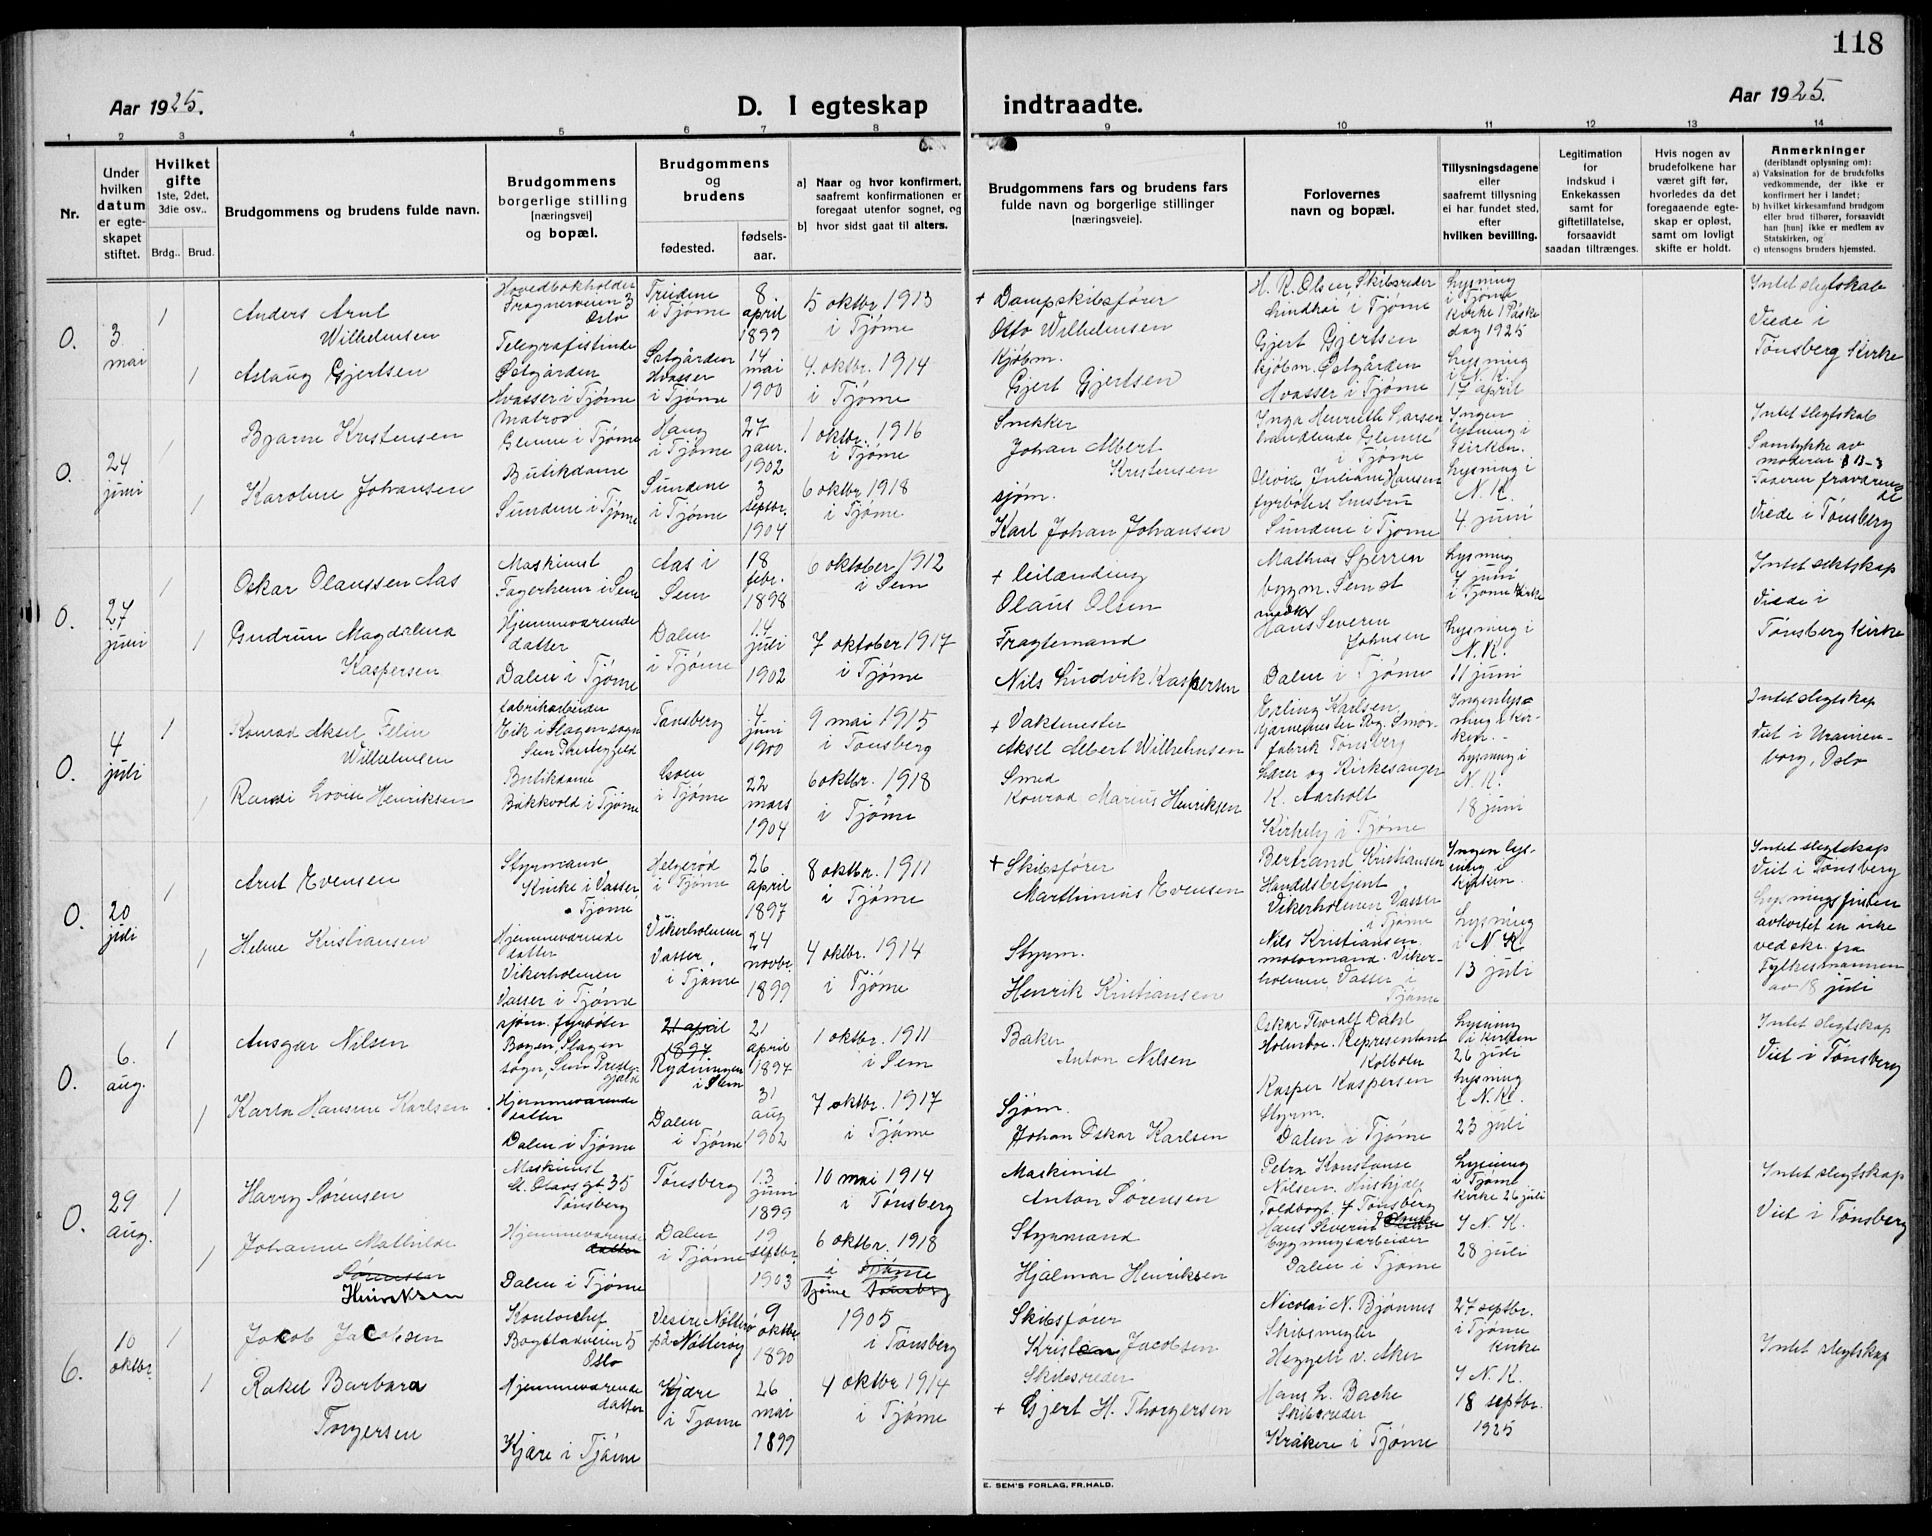 118
Aar 1925.
D. I egteskap indtraadte.
Aar 1925.
1 2 3 4 5 6 7 8 9 10 11 12 13 14
Nr.
Under hvilken datum er egteskapet stiftet.
Hvilket gifte 1ste, 2det, 3die osv..
Brdg.. Brud.
Brudgommens og brudens fulde navn.
Brudgommens borgerlige stilling [næringsvei] og bopæl.
Brudgommens og brudens
fødested. fødselsaar.
a) Naar og hvor konfirmert, saafremt konfirmationen er foregaat utenfor sognet, og
b) hvor sidst gaat til alters.
Brudgommens fars og brudens fars fulde navn og borgerlige stillinger [næringsveie].
Forlovernes navn og bopæl.
Tillysningsdagene eller saafremt tillysning ei har fundet sted, efter hvilken bevilling.
Legitimation for indskud i Enkekassen samt for giftetillatelse, forsaavidt saadan tiltrænges.
Hvis nogen av brudefolkene har været gift før, hvorledes da det foregaaende egteskap er opløst, samt om lovligt skifte er holdt.
Anmerkninger
(deriblandt oplysning om):
a) Vaksination for de brudfolks vedkommende, der ikke er konfirmert her i landet;
b) hvilket kirkesamfund brudgom eller brud tilhører, forsaavidt han [hun] ikke er medlem av Statskirken, og
c) utensogns bruders hjemsted.
0. 3 mai
1
Anders Arnt Wilhelmsen
Hovedbokholder Frognerveien 3 Oslo
i Tjøme
8 april 1899
5 oktbr 1913 i Tjøme
+ Dampskibsfører Otto Wilhelmsen
H. R. Olsen Skibsreder Lindhøi i Tjøme
Lysning i Tjøme kirke 1 Påskedag 1925
Intet slegtskab
Viede i Tønsberg Kirke
1
Aslaug Gjertsen
Telegrafistinde Østgården Hvasser i Tjøme
Østgården Hvasser i Tjøme
14 mai 1900
4. oktbr. 1914 i Tjøme
Kjøbm. Gjert Gjertsen
Gjert Gjertsen kjøbm. Østgården Hvasser i Tjøme
Lysning i N. K. 17 april
0. 24 juni
1
Bjarne Kristensen
Matros Glenne i Tjøme
Haug i Tjøme
27 janr. 1902
1 oktbr. 1916 i Tjøme
Snekker Johan Albert Kristensen
Inga Henriette Larsen handlende Glenne i Tjøme
Ingen lysning i kirken.
Intet slegtskab
Samtykke av moderen
Faderen fraværende
Viede i Tønsberg
1
Karoline Johansen
Butikdame Sundene i Tjøme
Sundene i Tjøme
3 septbr. 1904
6 oktbr 1918 i Tjøme
sjøm. Karl Johan Johansen
Olivie Juliane Hansen fyrbøters hustru Sundene i Tjøme
Lysning i N. K. 4 juni
0. 27 juni
1
Oskar Olaussen Aas
Maskinist Fagerheim i Sem
Aas i Sem
18 febr. 1898
6 oktober 1912 i Sem
+ leilænding Olaus Olsen
Mathias Sperren bygm. Sem st
Lysning 7 juni i Tjøme Kirke
Intet slektskap
Viede i Tønsberg Kirke
1
Gudrun Magdalena Kaspersen
Hjemmeværende datter Dalen i Tjøme
Dalen i Tjøme
14 juli 1902
7 oktober 1917 i Tjøme
Fragtemand Nils Ludvik Kaspersen
Hans Severin Johnsen Dalen i Tjøme
Lysning i N. K. 11 juni
0. 4 juli
1
Konrad Aksel Felin Wilhelmsen
fabrikarbeider Eik i Slagen sogn Sem Præstegjeld
Tønsberg
4 juni 1900
9 mai 1915 i Tønsberg
+ Vaktmester Aksel Albert Wilhelmsen
Erling Karlsen, Tønsberg
Ingen lysning i kirken.
Intet slegtskap
Viet i Uranienborg, Oslo
1
Randi Lovise Henriksen
Butikdame Bakkvold i Tjøme
i Tjøme
22 mars 1904
6 oktbr. 1918 i Tjøme
Smed Konrad Marius Henriksen
Lærer og Kirkesanger K. Aarholt Kirkely i Tjøme
Lysning i N. K. 18 juni
0. 20 juli
1
Arnt Evensen
Styrmand Kruke i Vasser Tjøme
Helgerød i Tjøme
26 april 1897
8 oktbr. 1911 i Tjøme
+ Skibsfører Marthinius Evensen
Bertrand Kristiansen Handelsbetjent Vikerholmen Vasser i Tjøme
Ingen lysning i kirken.
Intet slegtskap
Viet i Tønsberg
Lysningsfristen avkortet en uke ved skr. fra Fylkesmannen av 18 juli
1
Helene Kristiansen
Hjemmeværende datter Vikerholmen Vasser i Tjøme
Vikerholmen Vasser i Tjøme
24 novbr. 1899
4 oktbr. 1914 i Tjøme
Styrm. Henrik Kristiansen
Nils Kristiansen motormand. Vikerholmen Vasser i Tjøme
Lysning i N. K. 13 juli
0. 6. aug.
1
Ansgar Nilsen
sjøm. fyrbøter Bogen, Slagen sogn, Sem Prestegjeld
21 april 1897 Rydningen i Sem
21 april 1897
1 oktbr. 1911 i Sem
Baker Anton Nilsen
Oskar Thoralf Dahl Holmboe. Representant Kolbotn
Lysning i kirken 26 juli
Intet slegtskap
Viet i Tønsberg
1
Karla Hansine Karlsen
Hjemmeværende datter Dalen i Tjøme
Dalen i Tjøme
31 aug 1902
7 oktbr. 1917 i Tjøme
Sjøm. Johan Oskar Karlsen
Kasper Kaspersen Styrm. Dalen i Tjøme
Lysning i N. K. 23 juli
0. 29 aug.
1
Harry Sørensen
Maskinist St. Olavs gt. 35 Tønsberg
Tønsberg
13 juni 1899
10 mai 1914 i Tønsberg
Maskinist Anton Sørensen
Petra Konstanse Nilsen. Hushjælp Foldbogt. 7 Tønsberg
Lysning i Tjøme kirke 26 juli
Intet slegtskap
Viet i Tønsberg
1
Johanne Mathilde Sørensen Henriksen
Hjemmeværende datter Dalen i Tjøme
Dalen i Tjøme
19 septbr. 1903
6 oktbr. 1918 i Tjøme Tjøme Tønsberg
Styrmand Hjalmar Henriksen
Hans Severin Johnsen bygningsarbeider Dalen i Tjøme
I N. K. 28 juli
6. 10 oktbr.
1
Jacob Jacobsen
Kontorchef Bogstadveien 5 Oslo
Vestre Nøtterø på Nøtterøy
9 oktbr 1890
1905 i Tønsberg
Skibsfører Kristian Jacobsen
Nicolai N. Bjønnes Skibsmegler Heggeli v. Aker
27 septbr. i Tjøme kirke
Intet slegtskap
1
Rakel Barbara Torgersen
Hjemmeværende datter Kjære i Tjøme
Kjære i Tjøme
26 mai 1899
4 oktbr 1914 i Tjøme
Skibsreder + Gjert H. Thorgersen
Hans L. Bache Skibsreder Kråkere i Tjøme
I N. K. 18 septbr. 1925
E. SEM'S FORLAG, FR.HALD.